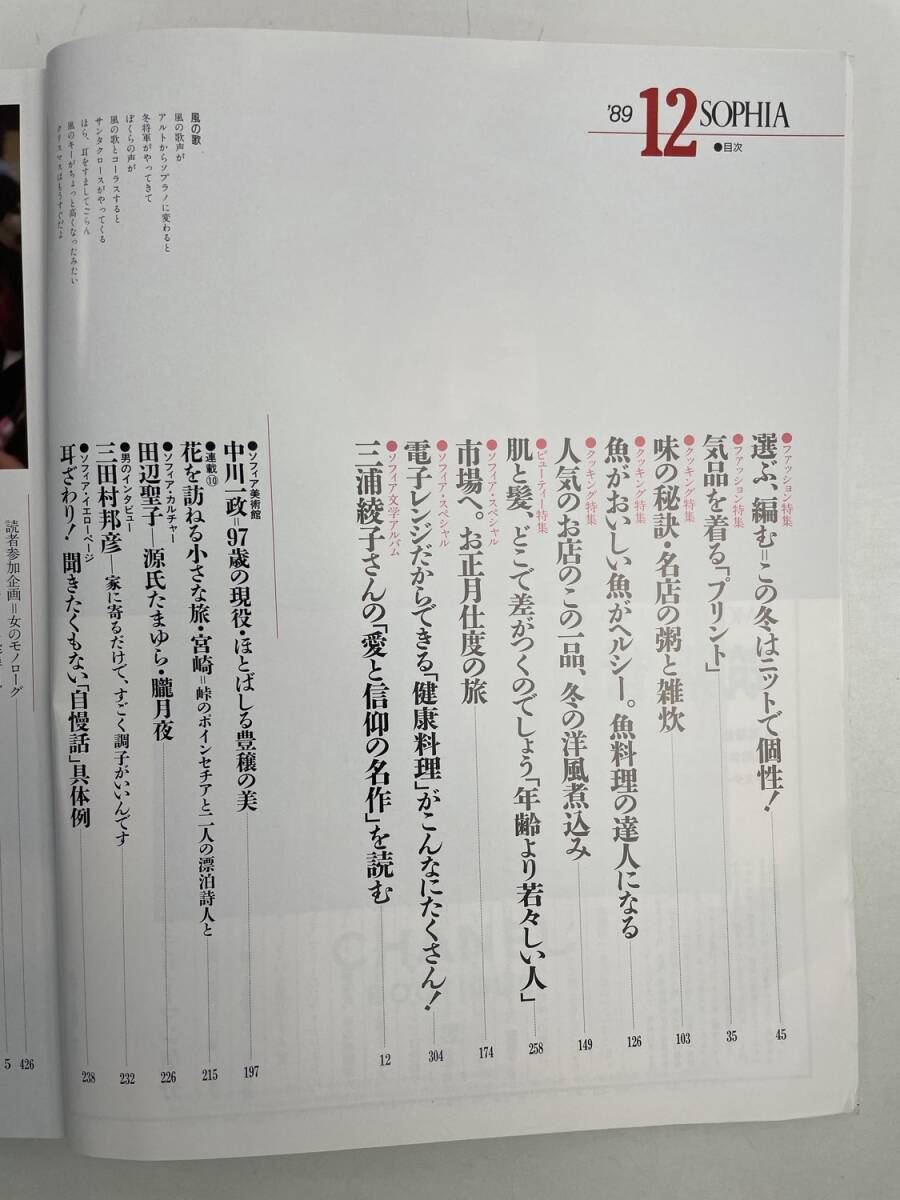 '89 12 SOPHIA
●目次
●ファッション特集
選ぶ、編む=この冬はニットで個性! 45
●ファッション特集
気品を着る「プリント」 35
●クッキング特集
味の秘訣・名店の粥と雑炊 103
●クッキング特集
魚がおいしい魚がヘルシー。魚料理の達人になる 126
●クッキング特集
人気のお店のこの一品、冬の洋風煮込み 149
●ビューティー特集
肌と髪、どこで差がつくのでしょう「年齢より若々しい人」 258
●ソフィア・スペシャル
市場へ。お正月仕度の旅 174
●ソフィア・スペシャル
電子レンジだからできる「健康料理」がこんなにたくさん! 304
●ソフィア文学アルバム
三浦綾子さんの「愛と信仰の名作」を読む 12
●ソフィア美術館
中川一政=97歳の現役・ほとばしる豊穣の美 197
●連載⑩
花を訪ねる小さな旅・宮崎=峠のポインセチアと二人の漂泊詩人と 215
●ソフィア・カルチャー
田辺聖子—源氏たまゆら・朧月夜 226
●男のインタビュー
三田村邦彦—家に寄るだけで、すごく調子がいいんです 232
●ソフィア・イエローページ
耳ざわり! 聞きたくもない「自慢話」具体例 238
風の歌
風の歌声が
アルトからソプラノに変わると
冬将軍がやってきて
ぼくらの声が
風の歌とコーラスすると
サンタクロースがやってくる
ほら、耳をすましてごらん
風のキーがちょっと高くなったみたい
クリスマスはもうすぐだよ
読者参加企画=女のモノローグ 426
5